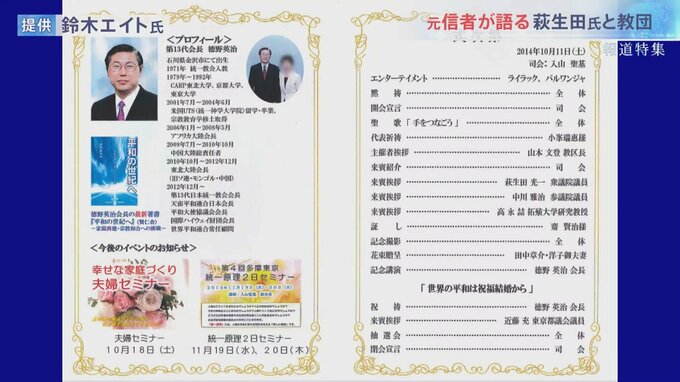 提供 鈴木エイト氏
元信者が語る 萩生田氏と教団
報道特集
＜プロフィール＞
第13代会長 徳野英治
石川県金沢市にて出生
1971年 統一教会入教
1979年～1992年
CARP東北大学、京都大学、
東京大学
2001年7月～2004年6月
米国UTS（統一神学大学院）留学・卒業。
宗教教育学修士取得
2006年1月～2008年5月
アフリカ大陸会長
2009年7月～2010年10月
中国大陸総責任者
2010年10月～2012年12月
東北大陸会長
（旧ソ連・モンゴル・中国）
2012年12月～
第13代日本統一教会会長
天宙平和連合日本会長
平和大使協議会会長
国際ハイウェイ財団会長
世界平和連合常任顧問
平和の世紀へ
徳野英治会長の最新著書
『平和の世紀へ』（賢仁舎）
＜今後のイベントのお知らせ＞
幸せな家庭づくり
夫婦セミナー
夫婦セミナー
10月18日（土）
第4回多摩東京
統一原理2日セミナー
統一原理2日セミナー
11月19日（水）、20日（木）
2014年10月11日（土）
司会：入山 聖基
エンターテイメント ライラック、パルワンジャ
黙祷 全体
開会宣言 司会
聖歌「手をつなごう」 全体
代表祈祷 小峯瑞恵様
主催者挨拶 山本 文登 教区長
来賓紹介 司会
来賓挨拶 萩生田 光一 衆議院議員
来賓挨拶 中川 雅治 参議院議員
来賓挨拶 高 永喆 拓殖大学研究教授
証し 齋 賢治様
記念撮影 全体
花束贈呈 田中章介・洋子御夫妻
記念講演 徳野 英治 会長
「世界の平和は祝福結婚から」
祝祷 徳野 英治 会長
来賓挨拶 近藤 充 東京都議会議員
抽選会 全体
閉会宣言 司会